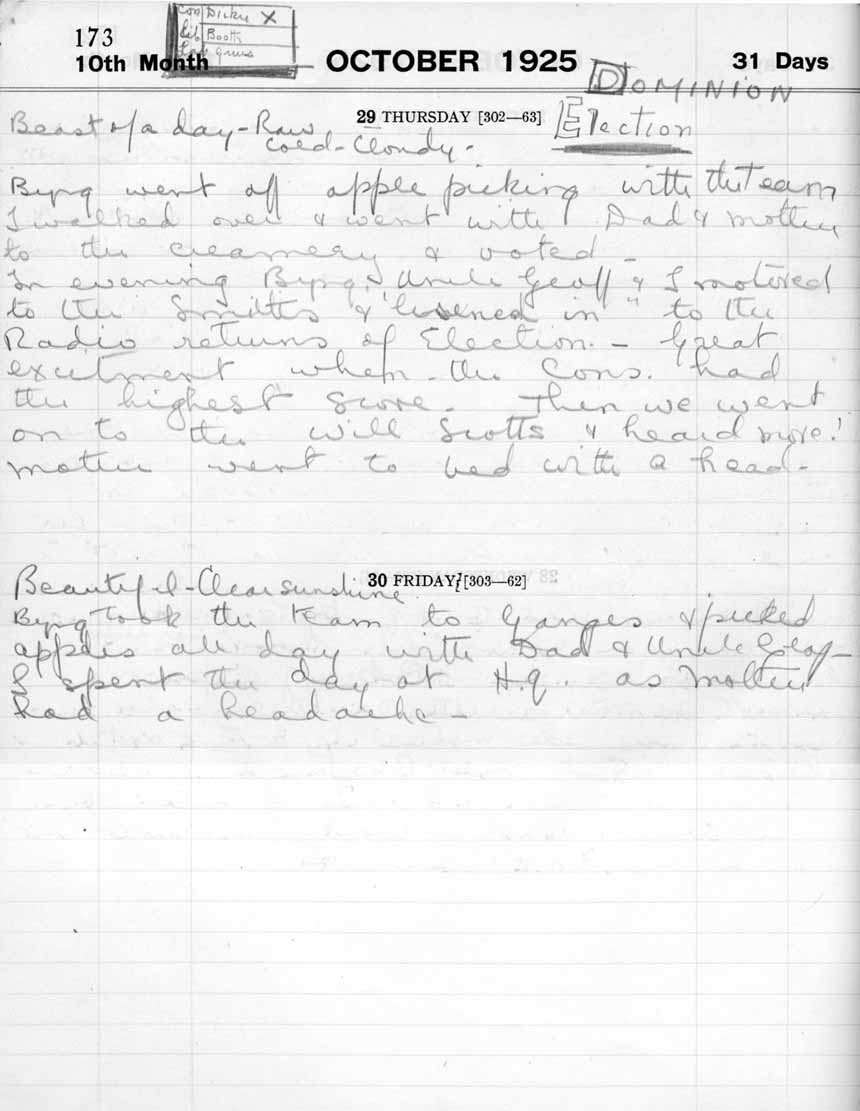 173
Con Dickie X
Lib. Booth
10th Month
OCTOBER 1925
31 Days
DOMINION
Election
29 THURSDAY [302—63]
Beast of a day - Raw
cold - Cloudy -
Byng went off apple picking with the Team
I walked over & went with Dad & mother
to the creamery & voted -
In evening Byng, Uncle Geoff & I motored
to the Smiths & "listened in" to the
Radio returns of Election. - Great
excitment when the Cons. had
the highest score. Then we went
on to the Will Scotts & heard more!
mother went to bed with a head -
30 FRIDAY [303—62]
Beautiful - Clear sunshine
Byng took the team to Ganges & picked
apples all day with Dad & Uncle Geof -
I spent the day at H.q. as mother
had a headache -